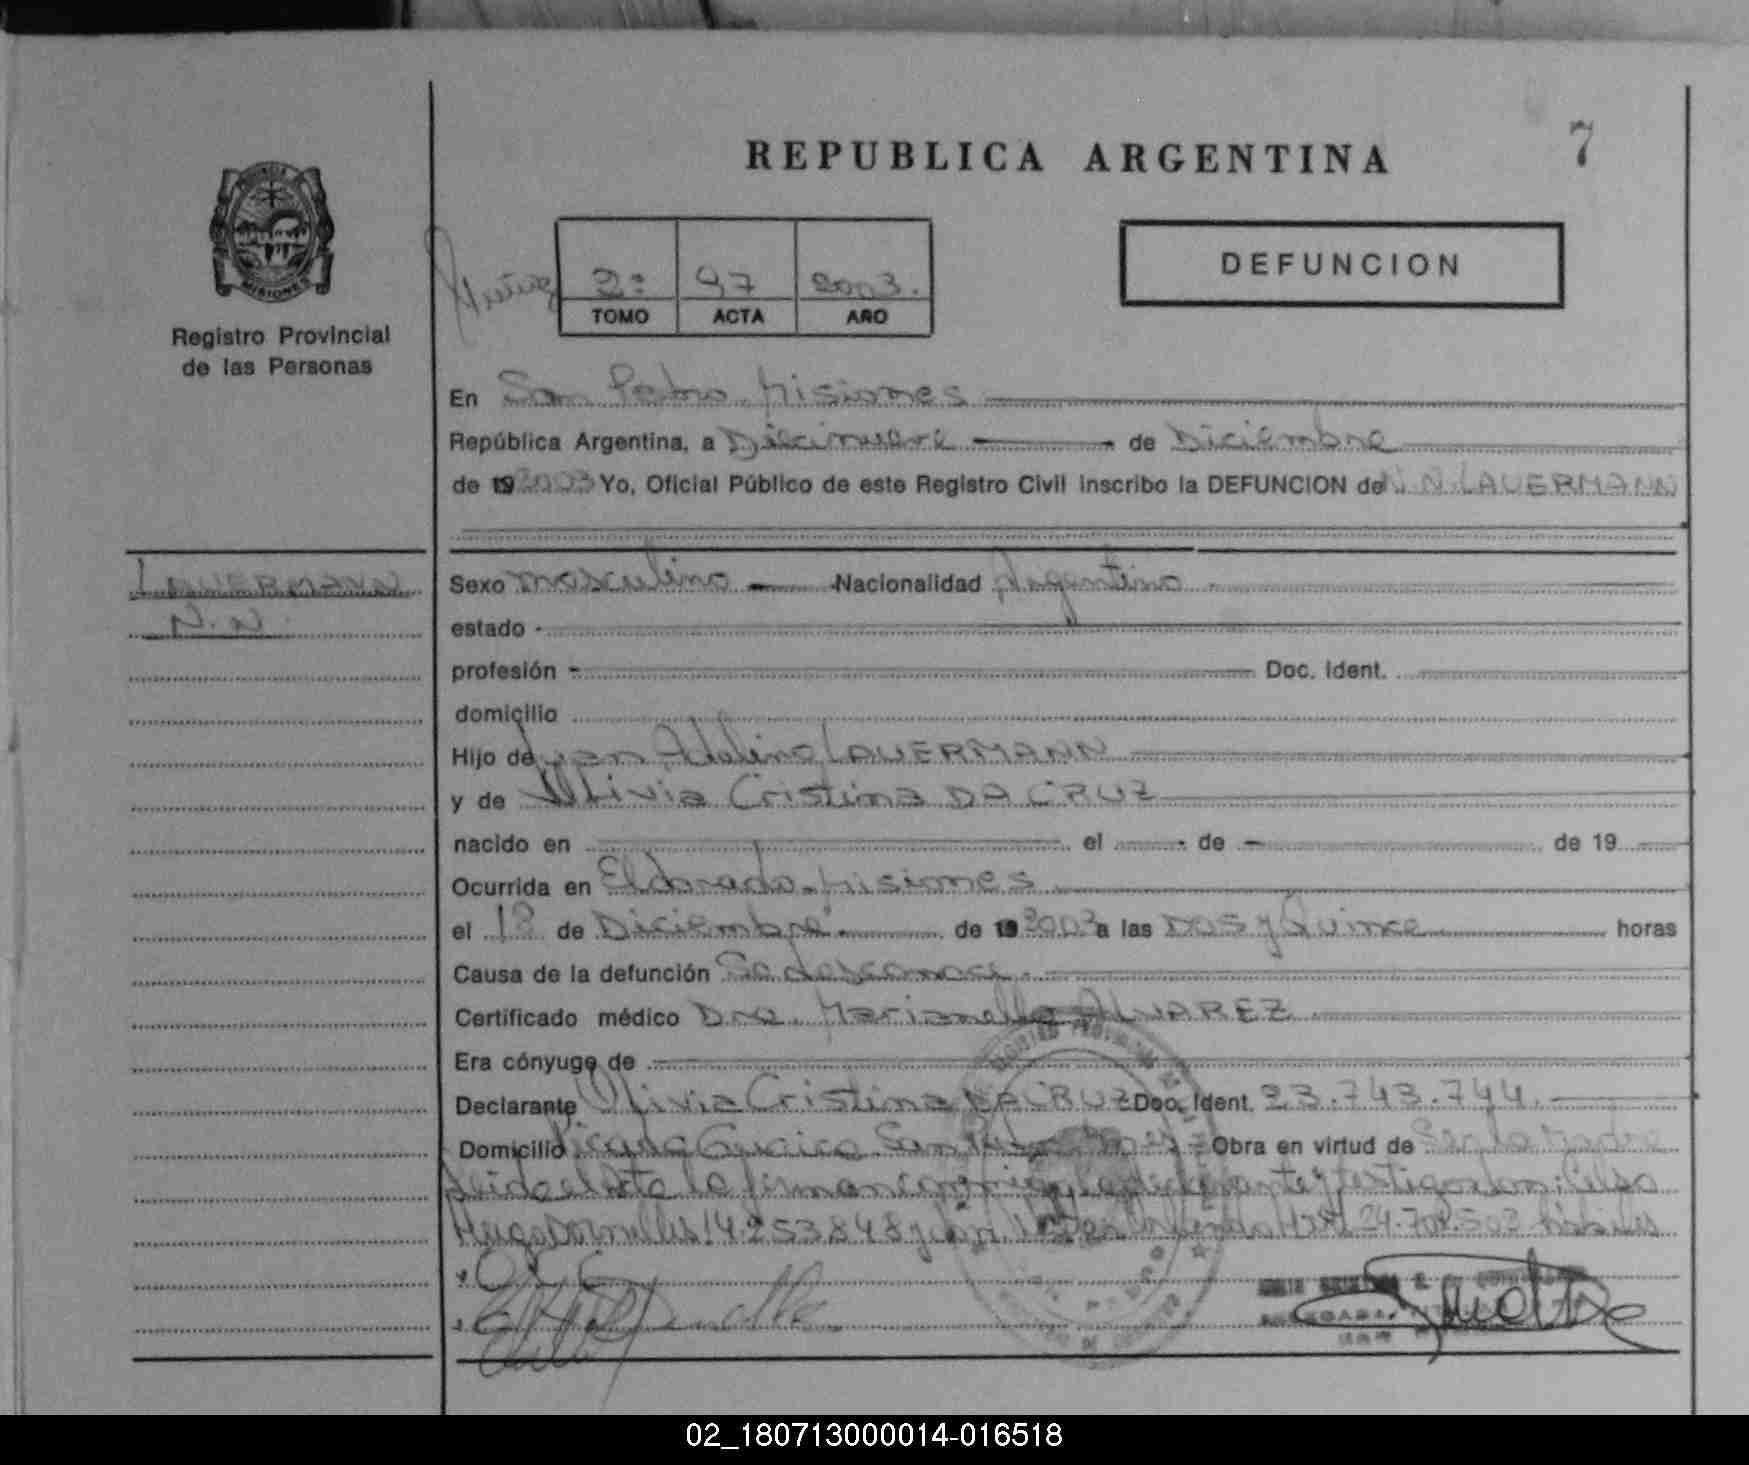 REPUBLICA ARGENTINA
7
MISIONES
Registro Provincial
de las Personas
2º 97 2003.
TOMO ACTA AÑO
DEFUNCION
En San Pedro. Misiones
República Argentina, a Diecinueve de Diciembre
de 19 2003 Yo, Oficial Público de este Registro Civil inscribo la DEFUNCION de N.N. LAUERMANN
LAUERMANN
N.N.
Sexo masculino Nacionalidad Argentino
estado
profesión Doc. Ident.
domicilio
Hijo de Juan Adelino LAUERMANN
y de Olivia Cristina DA CRUZ
nacido en el de de 19
Ocurrida en Eldorado. Misiones
el 18 de Diciembre de 19 2003 a las Dos y Quince horas
Causa de la defunción Se desconoce.
Certificado médico Dra. Marianella ALVAREZ
Era cónyuge de
Declarante Olivia Cristina DA CRUZ Doc. Ident. 23.743.744.
Domicilio San Pedro Obra en virtud de Ser la Madre
Leida el Acta la firman conmigo la declarante y testigos Celso
Hugo 14.253.848 y hábiles
02_180713000014-016518